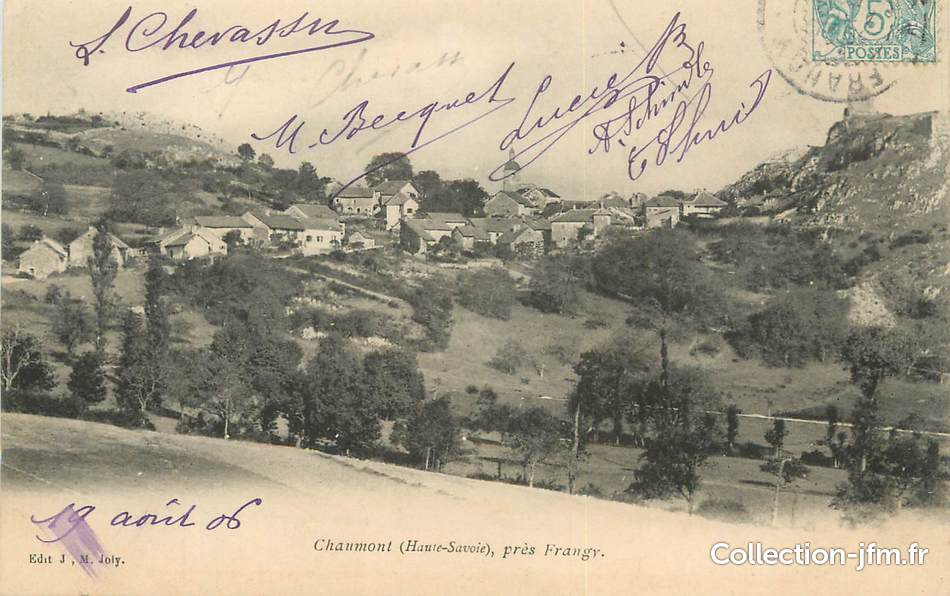 L. Chevassu
M. Becquet
Lucie B.
5c
POSTES
FRANGY
19 août 06
Chaumont (Haute-Savoie), près Frangy.
Edit J, M. Joly.
Collection-jfm.fr